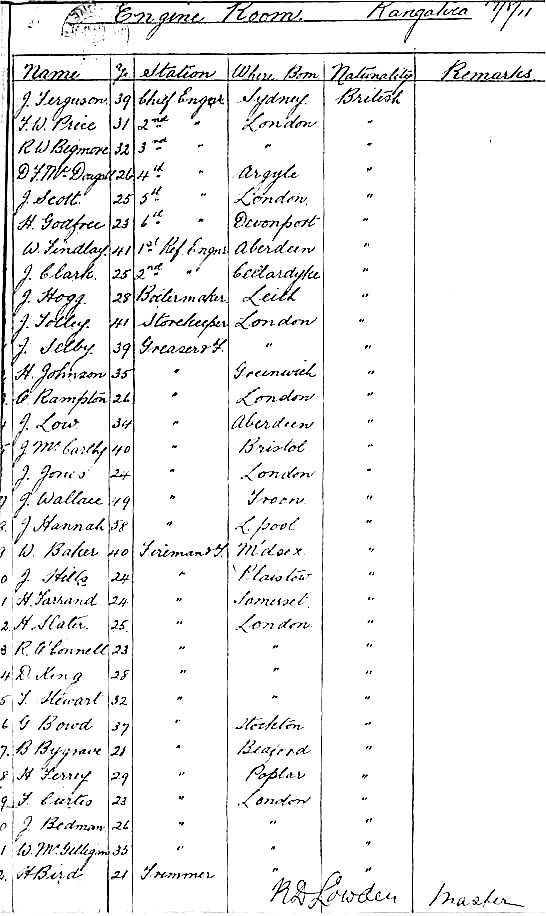 Engine Room. Rangatira
Name Station Where Born Nationality Remarks.
J. Ferguson 39 Chief Enger Sydney British
F. W. Price 31 2nd " London "
R W Begmore 32 3rd " " "
D F. Mc Dougall 26 4th " Argyle "
J. Scott 25 5th " London "
H. Godfree 23 6th " Devonport "
W. Findlay 41 1st Ref Engnr Aberdeen "
J. Clark 25 2nd " Cellardyke "
J. Hogg 28 Boilermaker Leith "
J. Tolley 41 Storekeeper London "
J. Selby 39 Greaser & F. " "
H. Johnson 35 " Greenwich "
C Rampton 26 " London "
J. Low 34 " Aberdeen "
J McCarthy 40 " Bristol "
J. Jones 24 " London "
J. Wallace 49 " Troon "
J Hannah 38 " L'pool "
9 W. Baker 40 Fireman & F. M'dsex "
0 J Hills 24 " Plaistow "
1 H Farrand 24 " Somerset "
2 H Slater 25 " London "
3 R. O'Connell 23 " " "
4 D. King 28 " " "
5 F. Stewart 32 " " "
6 G Bowd 37 " Stockton "
7. B Bygrave 21 " Bedford "
8 H Ferrey 29 " Poplar "
9 F Curtis 23 " London "
0 J Bedman 26 " " "
1 W. McGilligan 35 " " "
2. H Bird 21 Trimmer " "
R D Lowden Master